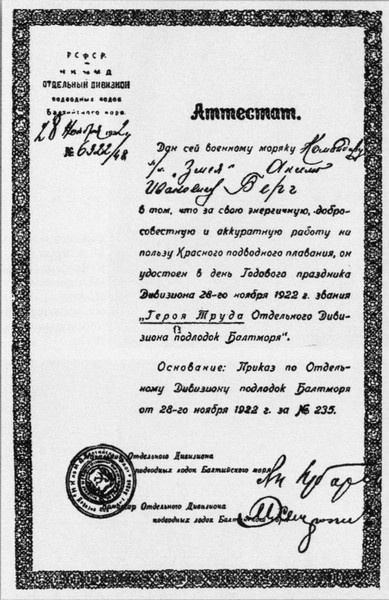 РСФСР.
НКМД
ОТДЕЛЬНЫЙ ДИВИЗИОН
подводных лодок
Балтийского моря.
28 Ноября 1922 г.
№ 6322/48
Аттестат.
Дан сей военному моряку Командиру
п/л. "Змея" Акселю
Ивановичу Берг
в том, что за свою энергичную, добро-
совестную и аккуратную работу на
пользу Красного подводного плавания, он
удостоен в день Годового праздника
Дивизиона 28-го ноября 1922 г. звания
"Героя Труда Отдельного Диви-
зиона подлодок Балтморя".
Основание: Приказ по Отдель-
ному Дивизиону подлодок Балтморя
от 28-го ноября 1922 г. за № 235.
Отдельного Дивизиона
подводных лодок Балтийского моря
Отдельного Дивизиона
подводных лодок